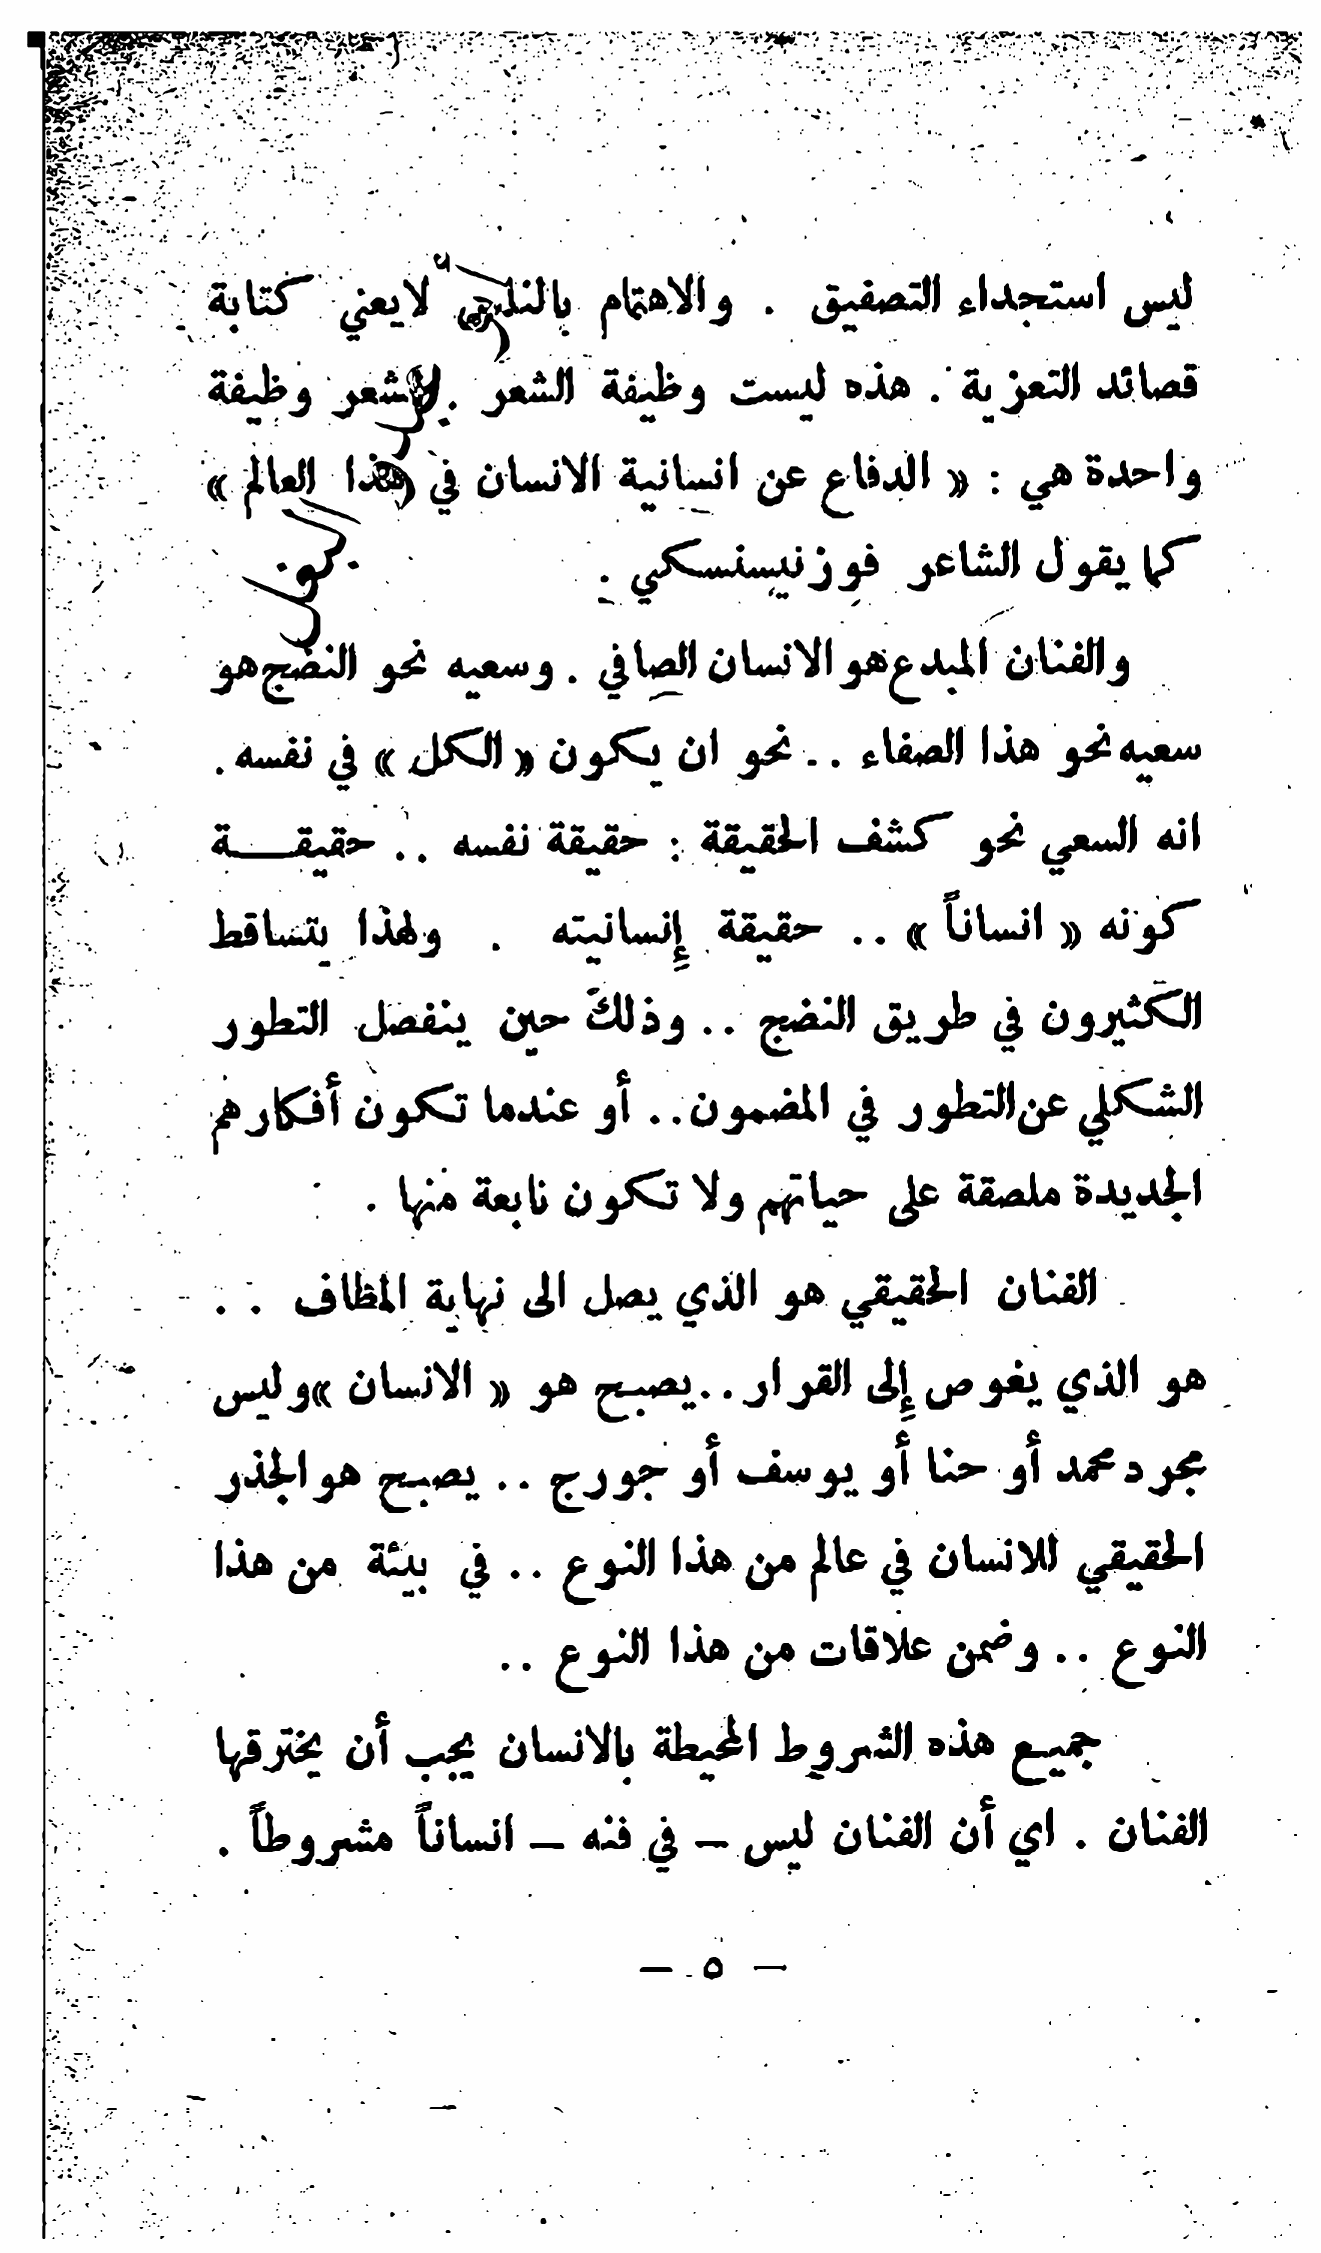 ليس استجداء التصفيق . والاهتمام لايعني كتابة
قصائد التعزية . هذه ليست وظيفة الشعر . للشعر وظيفة
واحدة هي : « الدفاع عن انسانية الانسان في هذا العالم »
كما يقول الشاعر فوزنيسنسكي .
والفنان المبدع هو الانسان الصافي . وسعيه نحو النضج هو
سعيه نحو هذا الصفاء .. نحو ان يكون « الكل » في نفسه .
انه السعي نحو كشف الحقيقة : حقيقة نفسه .. حقيقـــة
كونه « انساناً » .. حقيقة إنسانيته . ولهذا يتساقط
الكثيرون في طريق النضج .. وذلك حين ينفصل التطور
الشكلي عن التطور في المضمون .. أو عندما تكون أفكارهم
الجديدة ملصقة على حياتهم ولا تكون نابعة منها .
الفنان الحقيقي هو الذي يصل الى نهاية المطاف ..
هو الذي يغوص إلى القرار .. يصبح هو « الانسان » وليس
مجرد محمد أو حنا أو يوسف أو جورج .. يصبح هو الجذر
الحقيقي للانسان في عالم من هذا النوع .. في بيئة من هذا
النوع .. وضمن علاقات من هذا النوع ..
جميع هذه الشروط المحيطة بالانسان يجب أن يخترقها
الفنان . اي أن الفنان ليس – في فنه – انساناً مشروطاً .
– ٥ –